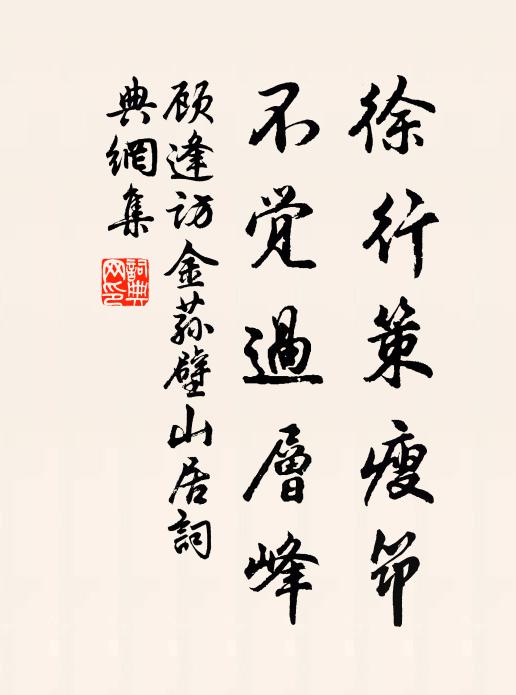 徐行策瘦笻
不觉過層峰
顾逢访金荪壁山居詞
典網集
詞典網印